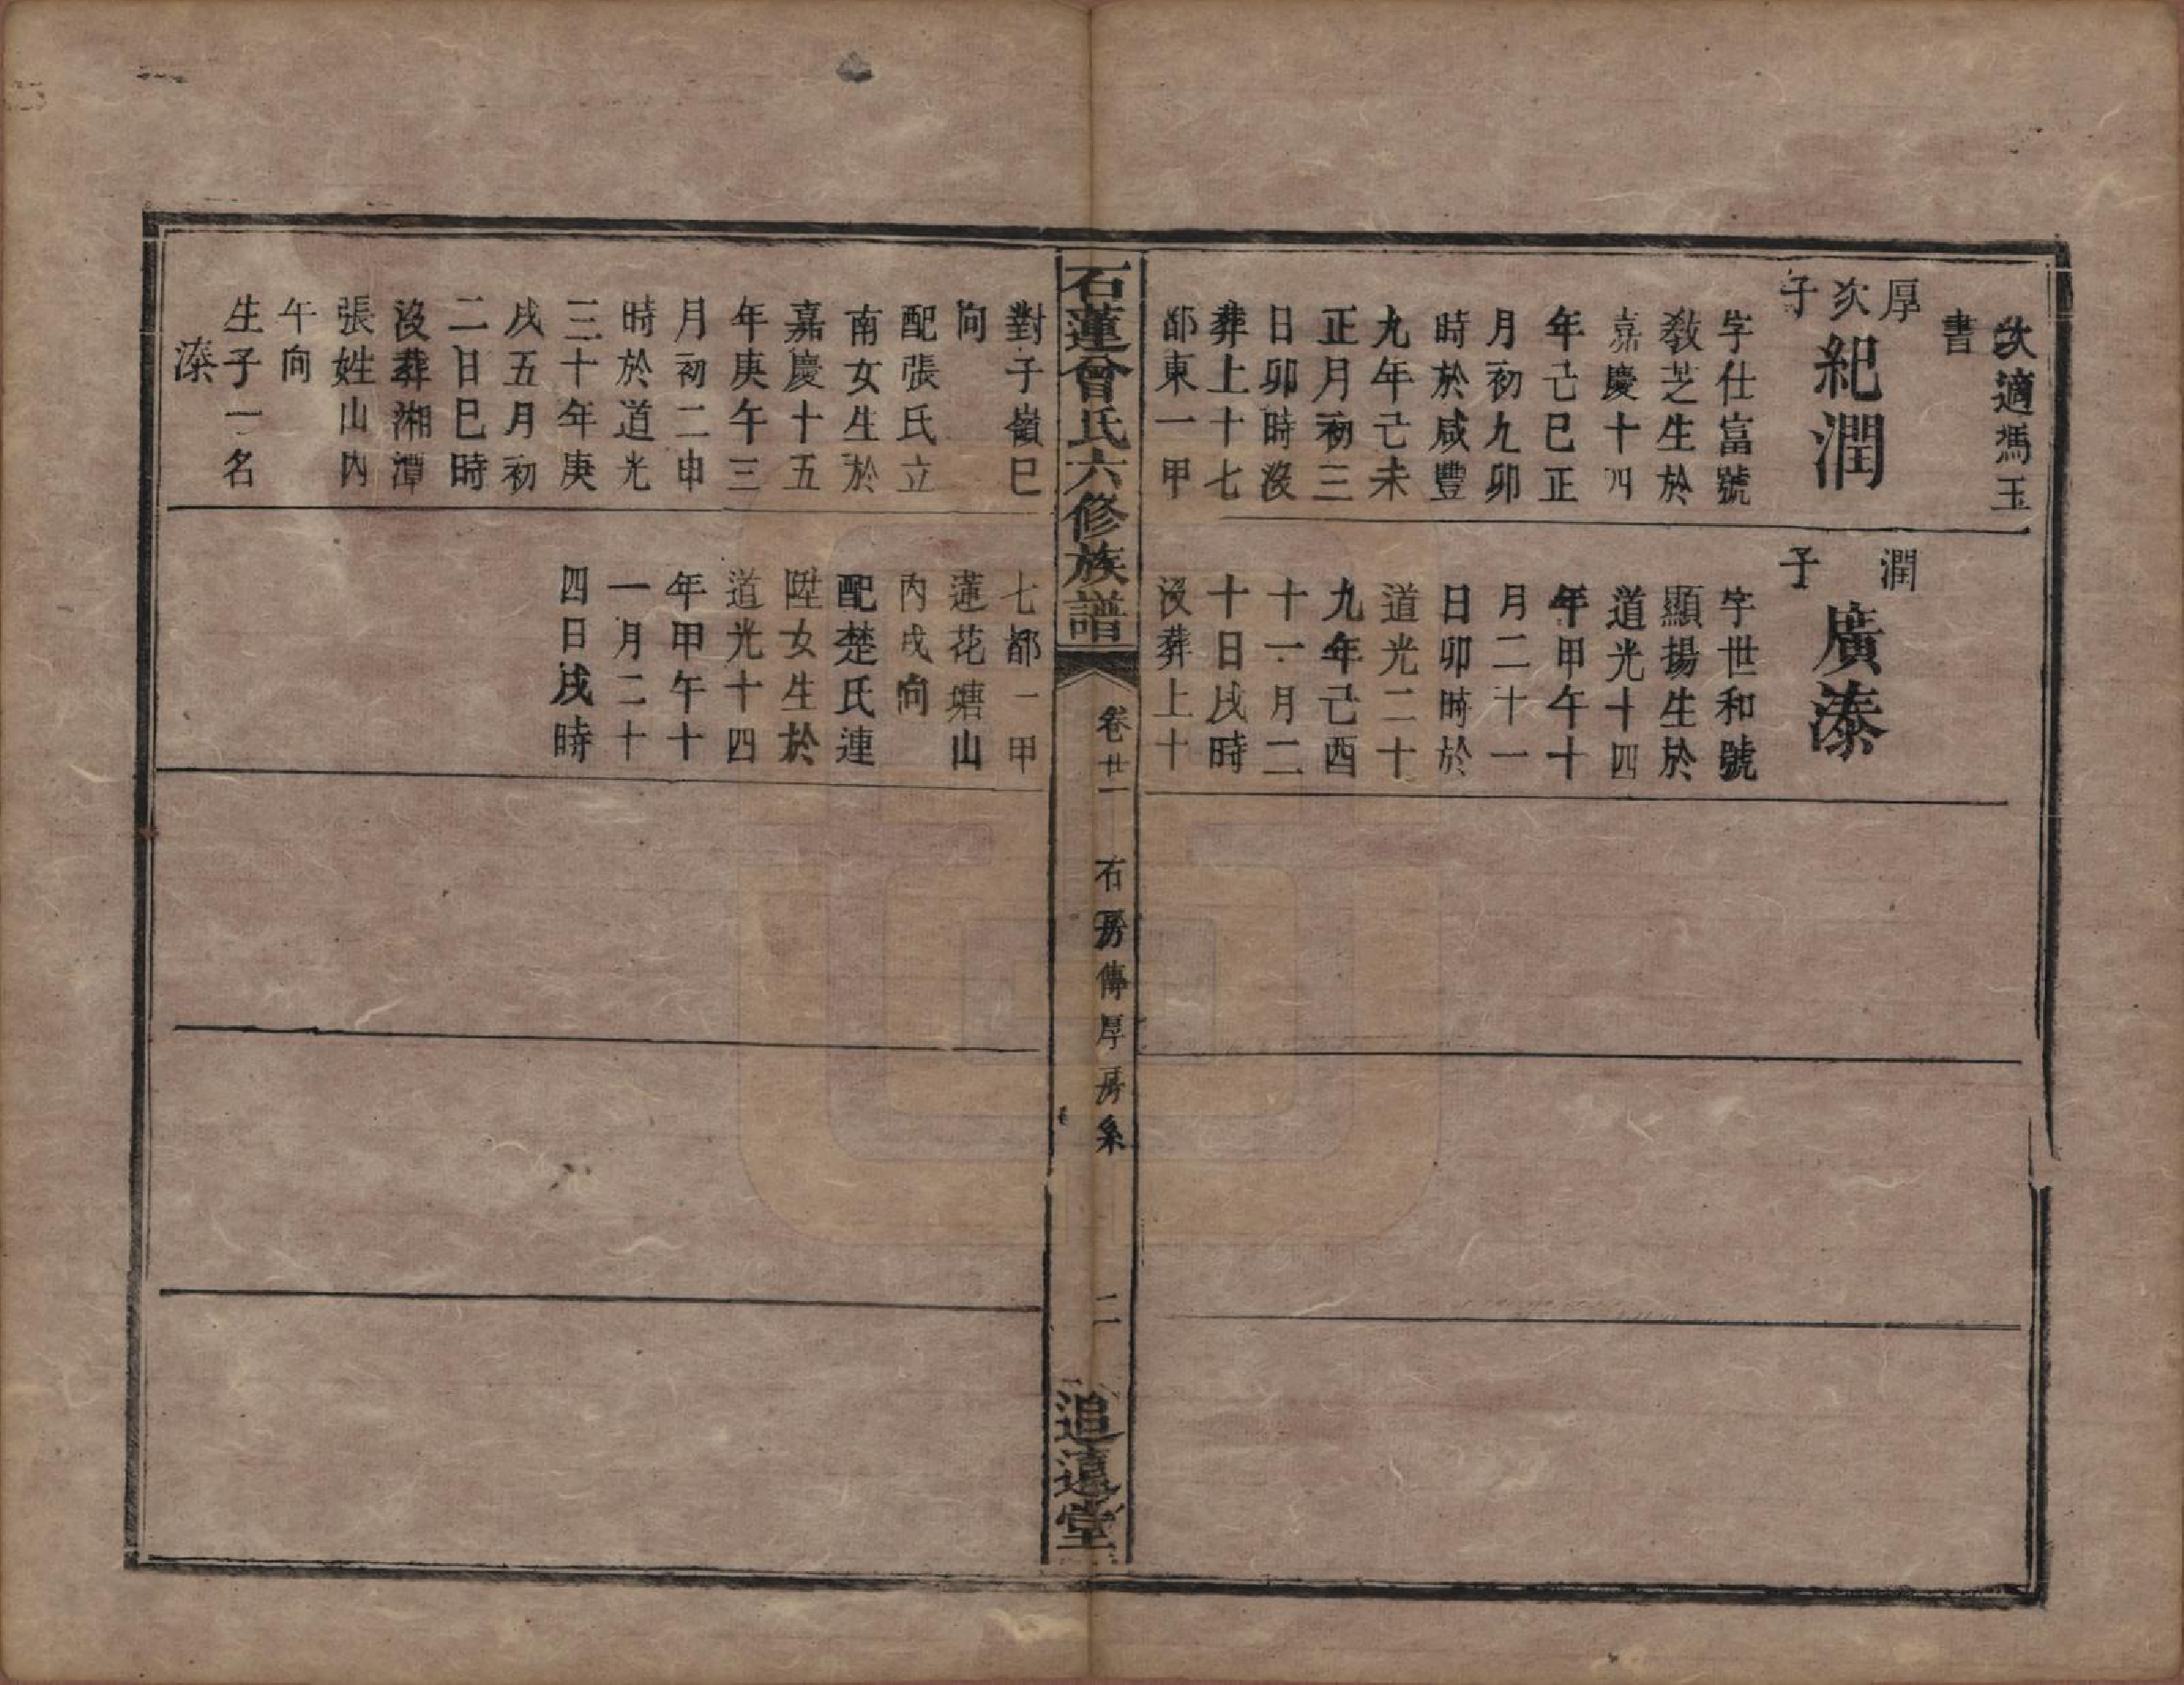 次適馮玉
書
厚次子
紀潤
字仕富號
教芝生於
嘉慶十四
年己巳正
月初九卯
時於咸豐
九年己未
正月初三
日卯時沒
葬上十七
都東一甲
潤子
廣溱
字世和號
顯揚生於
道光十四
年甲午十
月二十一
日卯時於
道光二十
九年己酉
十一月二
十日戌時
沒葬上十
石蓮曾氏六修族譜
卷廿一
石房傳厚房系
二
追遠堂
對子嶺巳
向
配張氏立
南女生於
嘉慶十五
年庚午三
月初二申
時於道光
三十年庚
戌五月初
二日巳時
沒葬湘潭
張姓山內
午向
生子一名
溱
七都一甲
蓮花塘山
內戌向
配楚氏連
陞女生於
道光十四
年甲午十
一月二十
四日戌時